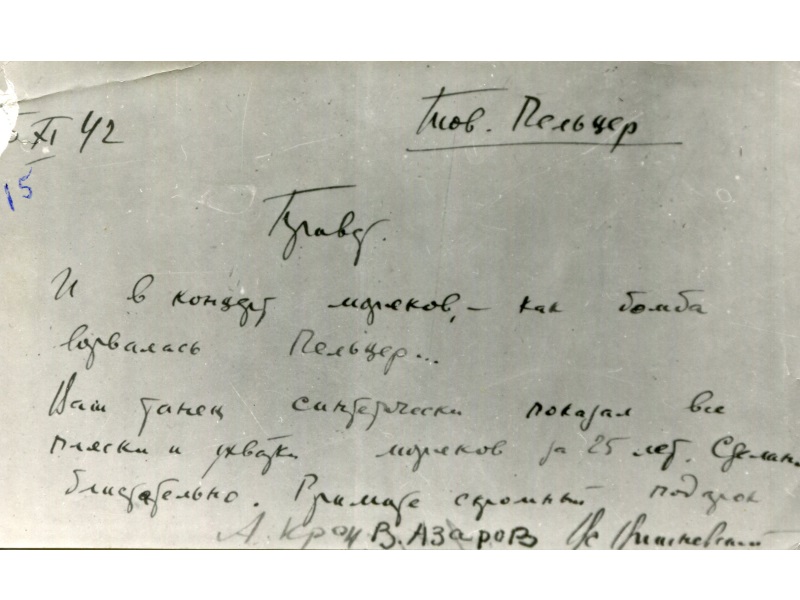 XI 42
Тов. Пельцер
15
И в концерт моряков, – как бомба
ворвалась Пельцер...
Ваш танец синтетически показал все
пляски и ухватки моряков за 25 лет. Сделано
блистательно. Примите скромный подарок
А. Крон В. Азаров Вс Вишневский